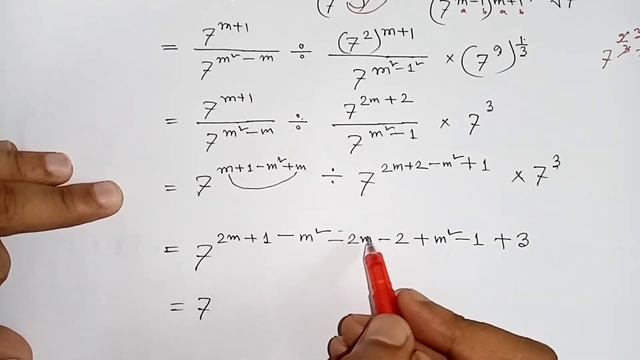 (7 (7^{m-1})^{m+1} √7
a b a b
= 7^{m+1}/7^{m²-m} ÷ (7²)^{m+1}/7^{m²-1²} × (7⁹)^{1/3}
= 7^{m+1}/7^{m²-m} ÷ 7^{2m+2}/7^{m²-1} × 7³
= 7^{m+1-m²+m} ÷ 7^{2m+2-m²+1} × 7³
= 7^{2m+1-m²-2m-2+m²-1+3}
= 7